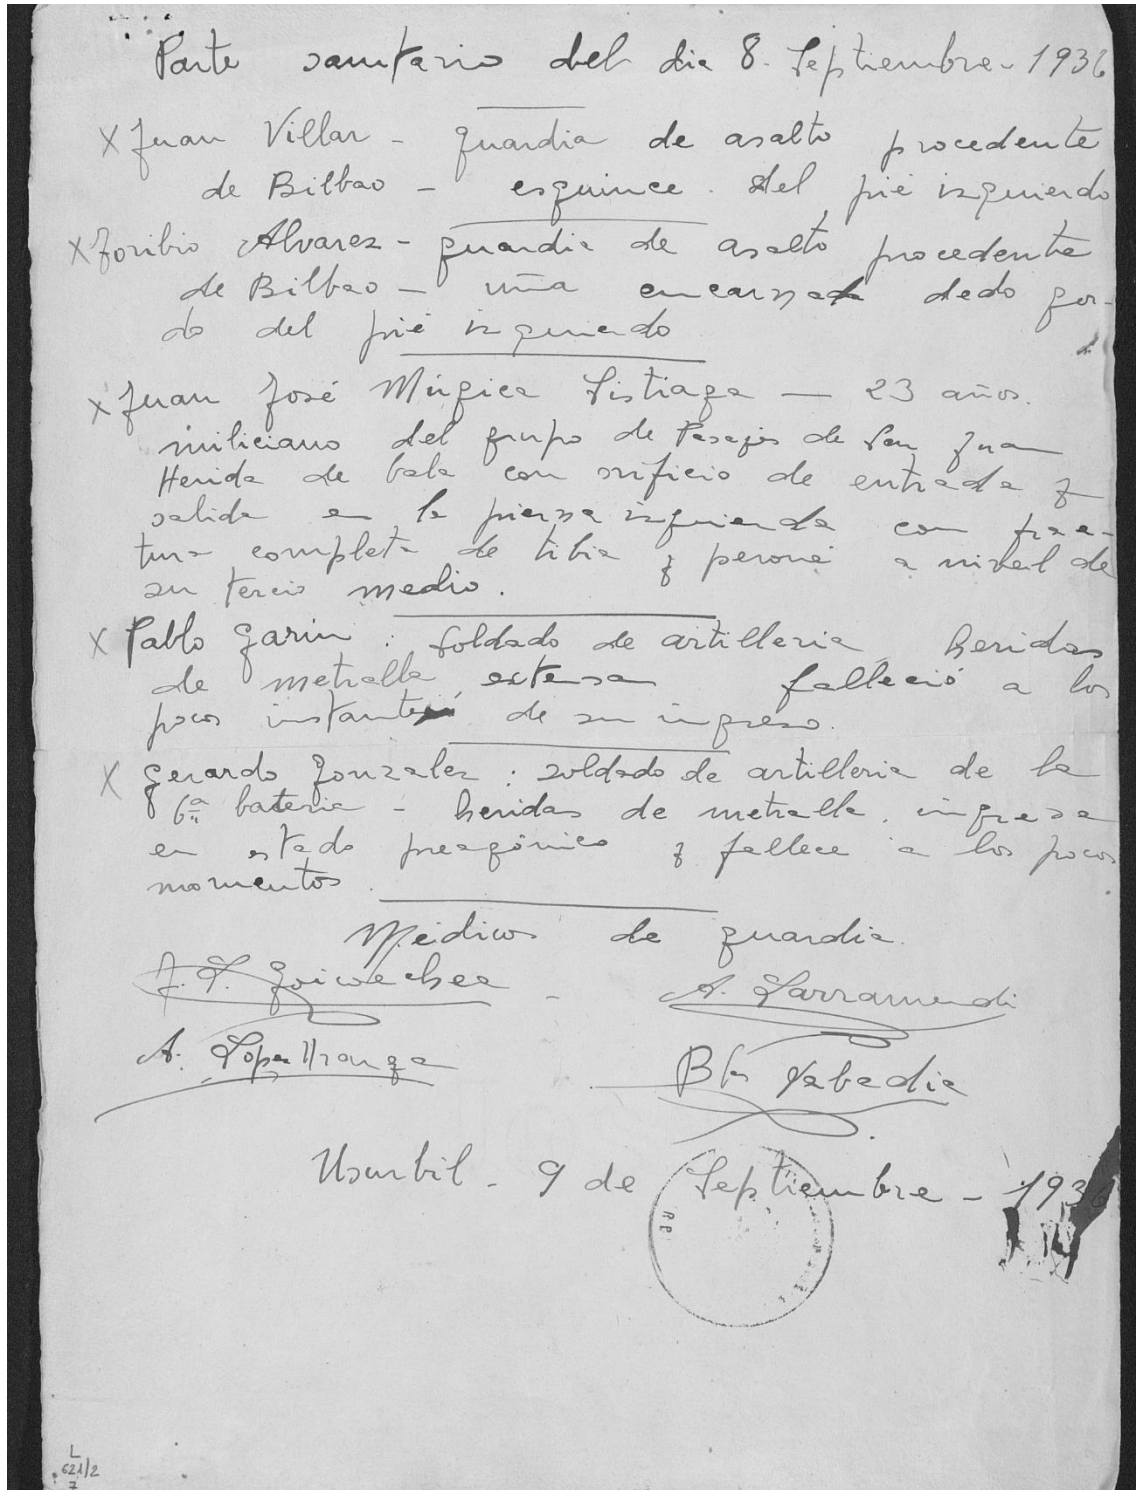 Parte sanitario del dia 8. Septiembre - 1936
X Juan Villar - guardia de asalto procedente
de Bilbao - esguince del pié izquierdo
X Toribio Alvarez - guardia de asalto procedente
de Bilbao - uña encarnada dedo gor-
do del pié izquierdo
X Juan José Múgica Sistiaga - 23 años.
miliciano del grupo de Pasajes de San Juan
Herida de bala con orificio de entrada y
salida en la pierna izquierda con frac-
tura completa de tibia y peroné a nivel de
su tercio medio.
X Pablo Garin : Soldado de artilleria heridas
de metralla extensa falleció a los
pocos instantes de su ingreso.
X Gerardo Gonzalez : soldado de artilleria de la
6ª bateria - heridas de metralla. ingresa
en estado preagónico y fallece a los pocos
momentos.
Médicos de guardia.
J. T. Goicoechea - A. Larramendi
A. Lopez Uranga Bto Sabadie
Usurbil - 9 de Septiembre - 1936
L
621/2
7